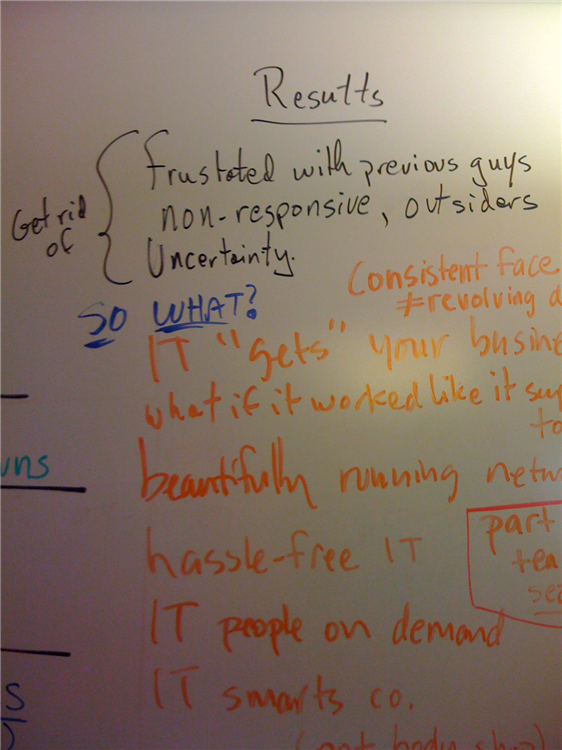 Results
Frustated with previous guys
non-responsive, outsiders
Uncertainty.
Get rid
of
SO WHAT?
Consistent face
≠revolving d
IT "gets" your busine
what if it worked like it sup
to
beautifully running netw
hassle-free IT
part
tea
IT people on demand
IT smarts co.
uns